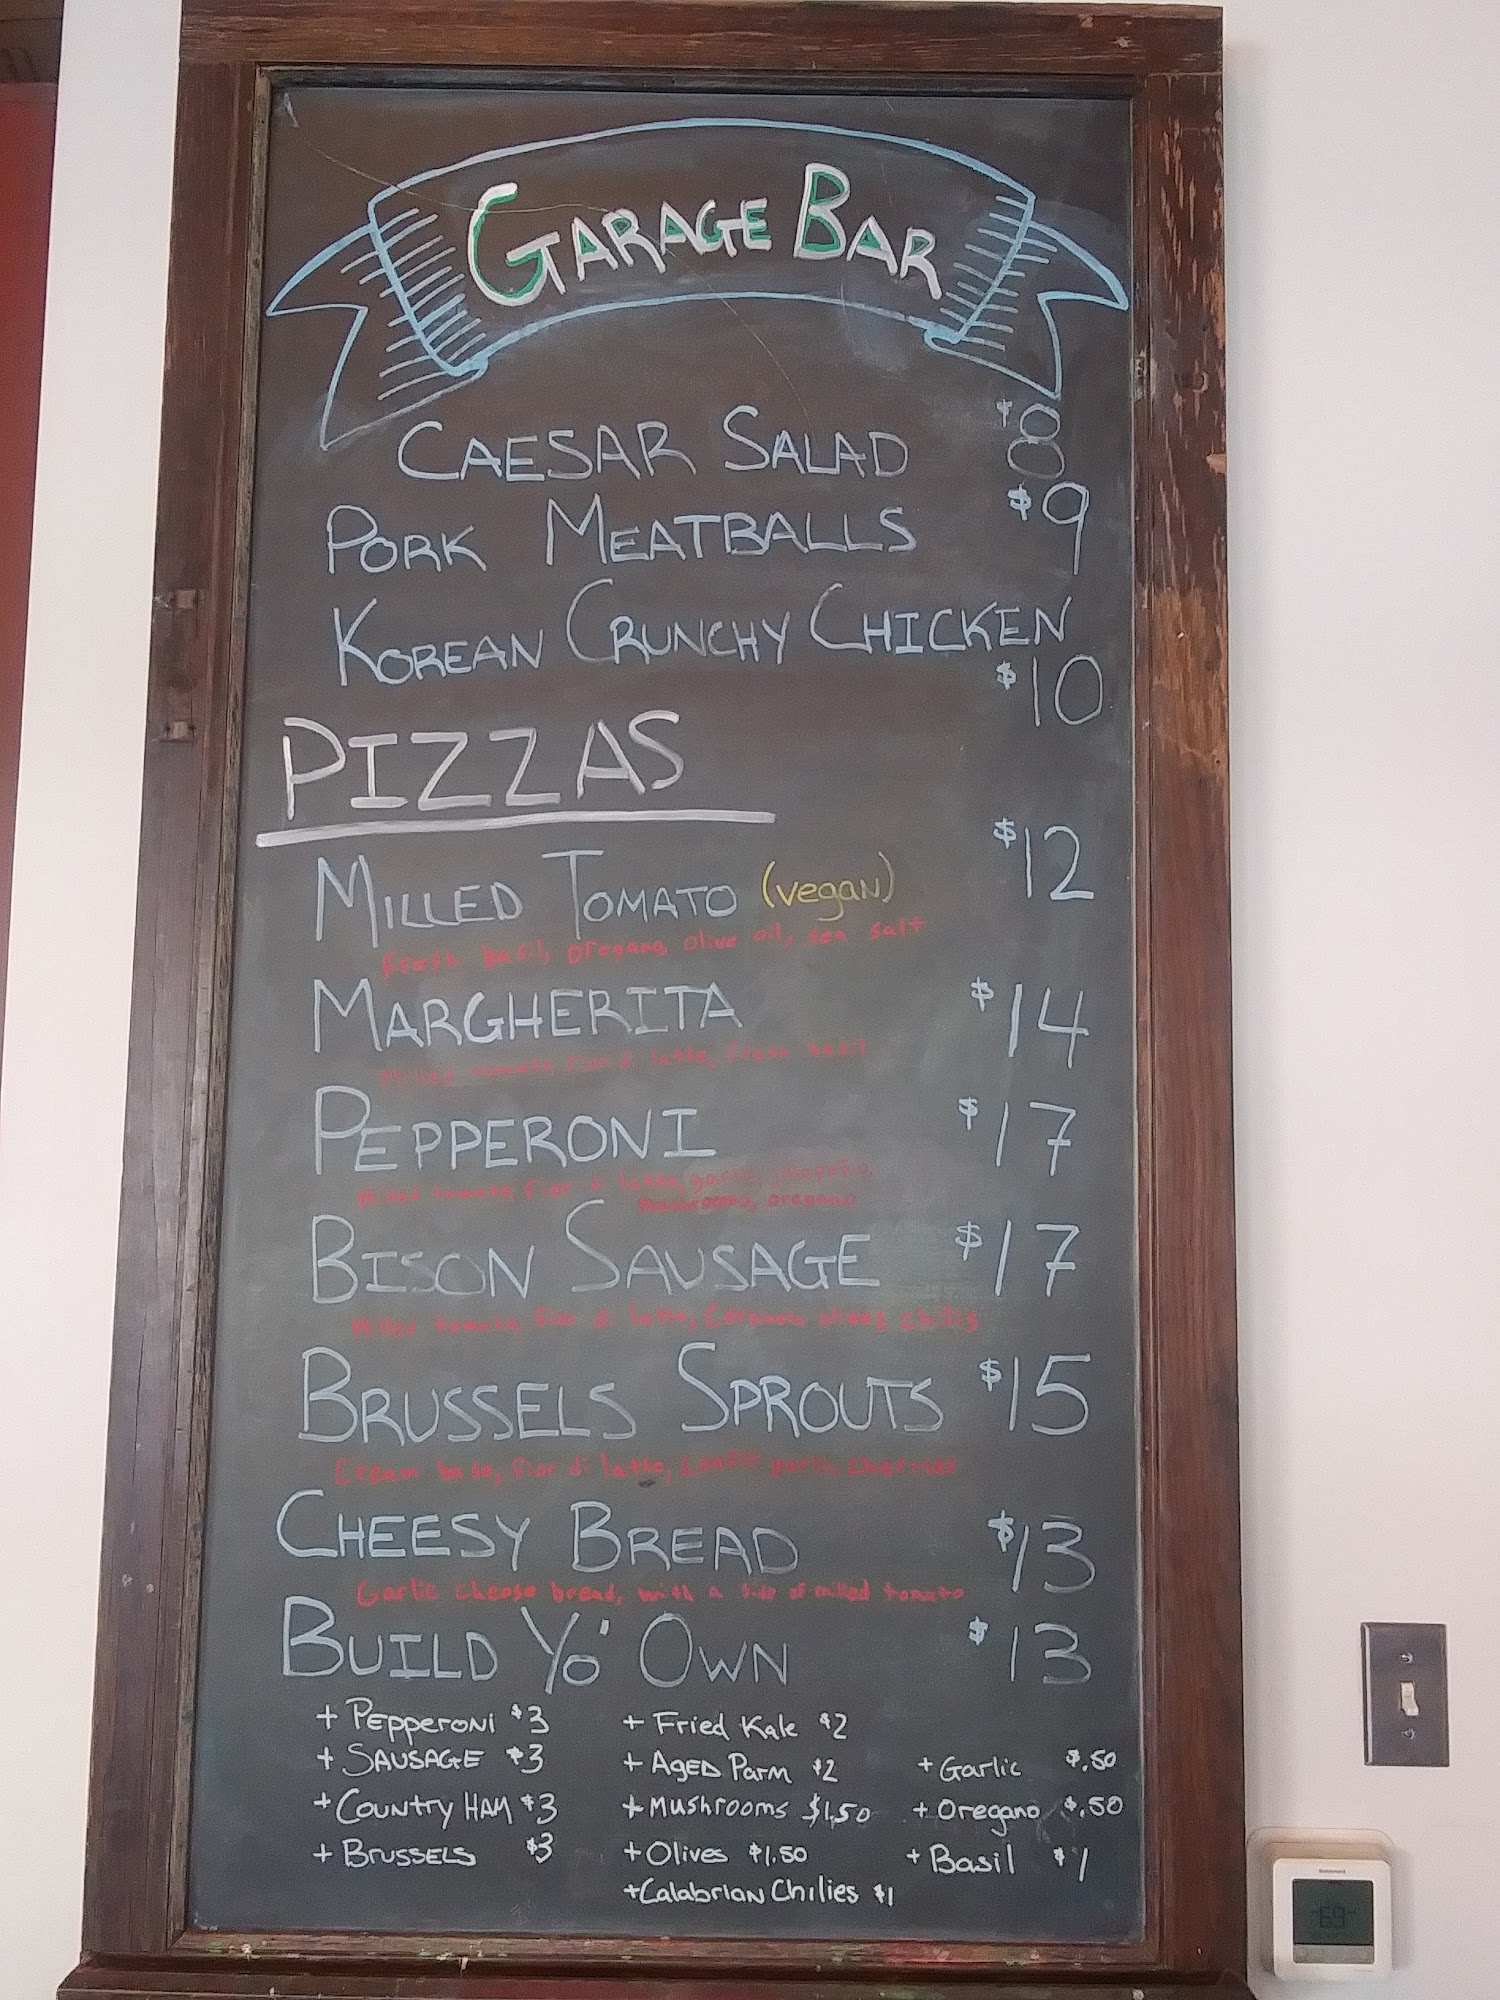 GARAGE BAR
CAESAR SALAD $8
PORK MEATBALLS $9
KOREAN CRUNCHY CHICKEN
$10
PIZZAS
MILLED TOMATO (vegan) $12
Fresh basil, oregano, olive oil, sea salt
MARGHERITA $14
Milled tomato, Fior di latte, fresh basil
PEPPERONI $17
Milled tomato, Fior di latte, garlic, jalapeño,
mushrooms, oregano
BISON SAUSAGE $17
Milled tomato, Fior di latte, olives, Chilis
BRUSSELS SPROUTS $15
Cream base, Fior di latte, Confit garlic, Cherries
CHEESY BREAD $13
Garlic cheese bread, with a side of milled tomato
BUILD YO' OWN $13
+ PEPPERONI $3 + Fried Kale $2
+ SAUSAGE $3 + AGED PARM $2 + Garlic $.50
+ COUNTRY HAM $3 + Mushrooms $1.50 + Oregano $.50
+ BRUSSELS $3 + Olives $1.50 + Basil $1
+ Calabrian Chilies $1
Honeywell
69